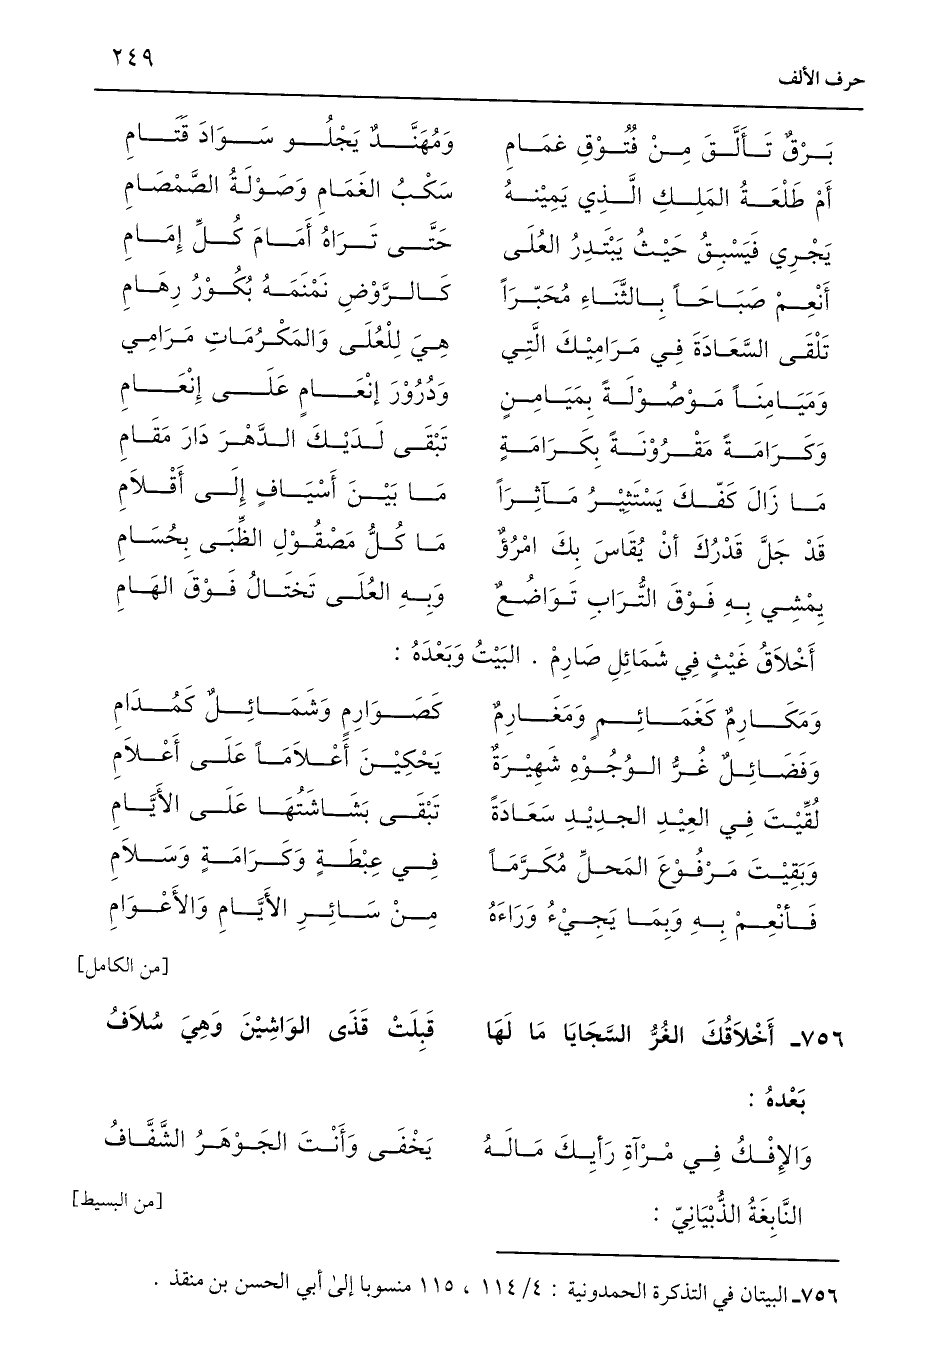 ٢٤٩
حرف الألف
بَرْقٌ تَأَلَّقَ مِنْ فُتُوْقِ غَمَامِ وَمُهَنَّدٌ يَجْلُو سَوَادَ قَتَامِ
أَمْ طَلْعَةُ المَلِكِ الَّذِي يَمِيْنهُ سَكْبُ الغَمَامِ وَصَوْلَةُ الصَّمْصَامِ
يَجْرِي فَيَسْبِقُ حَيْثُ يَبْتَدِرُ العُلَى حَتَّى تَرَاهُ أَمَامَ كُلِّ إِمَامِ
أَنْعِمْ صَبَاحَاً بِالثَّنَاءِ مُحَبَّرَاً كَالرَّوْضِ نَمْنَمَهُ بُكُوْرُ رِهَامِ
تَلْقَى السَّعَادَةَ فِي مَرَامِيْكَ الَّتِي هِيَ لِلْعُلَى وَالمَكْرُمَاتِ مَرَامِي
وَمَيَامِنَاً مَوْصُوْلَةً بِمَيَامِنٍ وَدُرُوْرَ إِنْعَامٍ عَلَى إِنْعَامِ
وَكَرَامَةً مَقْرُوْنَةً بِكَرَامَةٍ تَبْقَى لَدَيْكَ الدَّهْرَ دَارَ مَقَامِ
مَا زَالَ كَفّكَ يَسْتَثِيْرُ مَآثِرَاً مَا بَيْنَ أَسْيَافٍ إِلَى أَقْلَامِ
قَدْ جَلَّ قَدْرُكَ أَنْ يُقَاسَ بِكَ امْرُؤٌ مَا كُلُّ مَصْقُوْلِ الظُّبَى بِحُسَامِ
يَمْشِي بِهِ فَوْقَ التُّرَابِ تَوَاضُعٌ وَبِهِ العُلَى تَخْتَالُ فَوْقَ الهَامِ
أَخْلَاقُ غَيْثٍ فِي شَمَائِلِ صَارِمْ . البَيْتُ وَبَعْدَهُ :
وَمَكَارِمٌ كَغَمَائِمٍ وَمَغَارِمٌ كَصَوَارِمٍ وَشَمَائِلٌ كَمُدَامِ
وَفَضَائِلٌ غُرُّ الوُجُوْهِ شَهِيْرَةٌ يَحْكِيْنَ أَعْلَامَاً عَلَى أَعْلَامِ
لُقِّيْتَ فِي العِيْدِ الجَدِيْدِ سَعَادَةً تَبْقَى بَشَاشَتُهَا عَلَى الأَيَّامِ
وَبَقِيْتَ مَرْفُوْعَ المَحَلِّ مُكَرَّمَاً فِي غِبْطَةٍ وَكَرَامَةٍ وَسَلَامِ
فَأنْعِمْ بِهِ وَبِمَا يَجِيْءُ وَرَاءَهُ مِنْ سَائِرِ الأَيَّامِ وَالأَعْوَامِ
[من الكامل]
٧٥٦ـ أَخْلَاقُكَ الغُرُّ السَّجَايَا مَا لَهَا قَبِلَتْ قَذَى الوَاشِيْنَ وَهِيَ سُلَافُ
بَعْدهُ :
وَالإِفْكُ فِي مْرْآةِ رَأيِكَ مَالَهُ يَخْفَى وَأَنْتَ الجَوْهَرُ الشَّفَّافُ
[من البسيط]
النَّابِغَةُ الذُّبْيَانِيّ :
٧٥٦ـ البيتان في التذكرة الحمدونية : ٤/ ١١٤ ، ١١٥ منسوبا إلىٰ أبي الحسن بن منقذ .